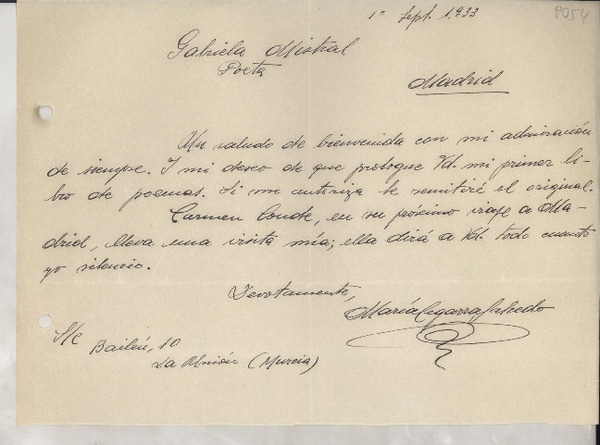 1º Sept. 1.933
P054
Gabriela Mistral
Poeta
Madrid
Un saludo de bienvenida con mi admiración
de siempre. Y mi deseo de que prologue Vd. mi primer li-
bro de poemas. Si me autoriza le remitiré el original.
Carmen Conde, en su próximo viaje a Ma-
drid, lleva una visita mía; ella dirá a Vd. todo cuanto
yo silencio.
Devotamente,
María Cegarra Salcedo
S/c
Bailén, 10
La Unión (Murcia)